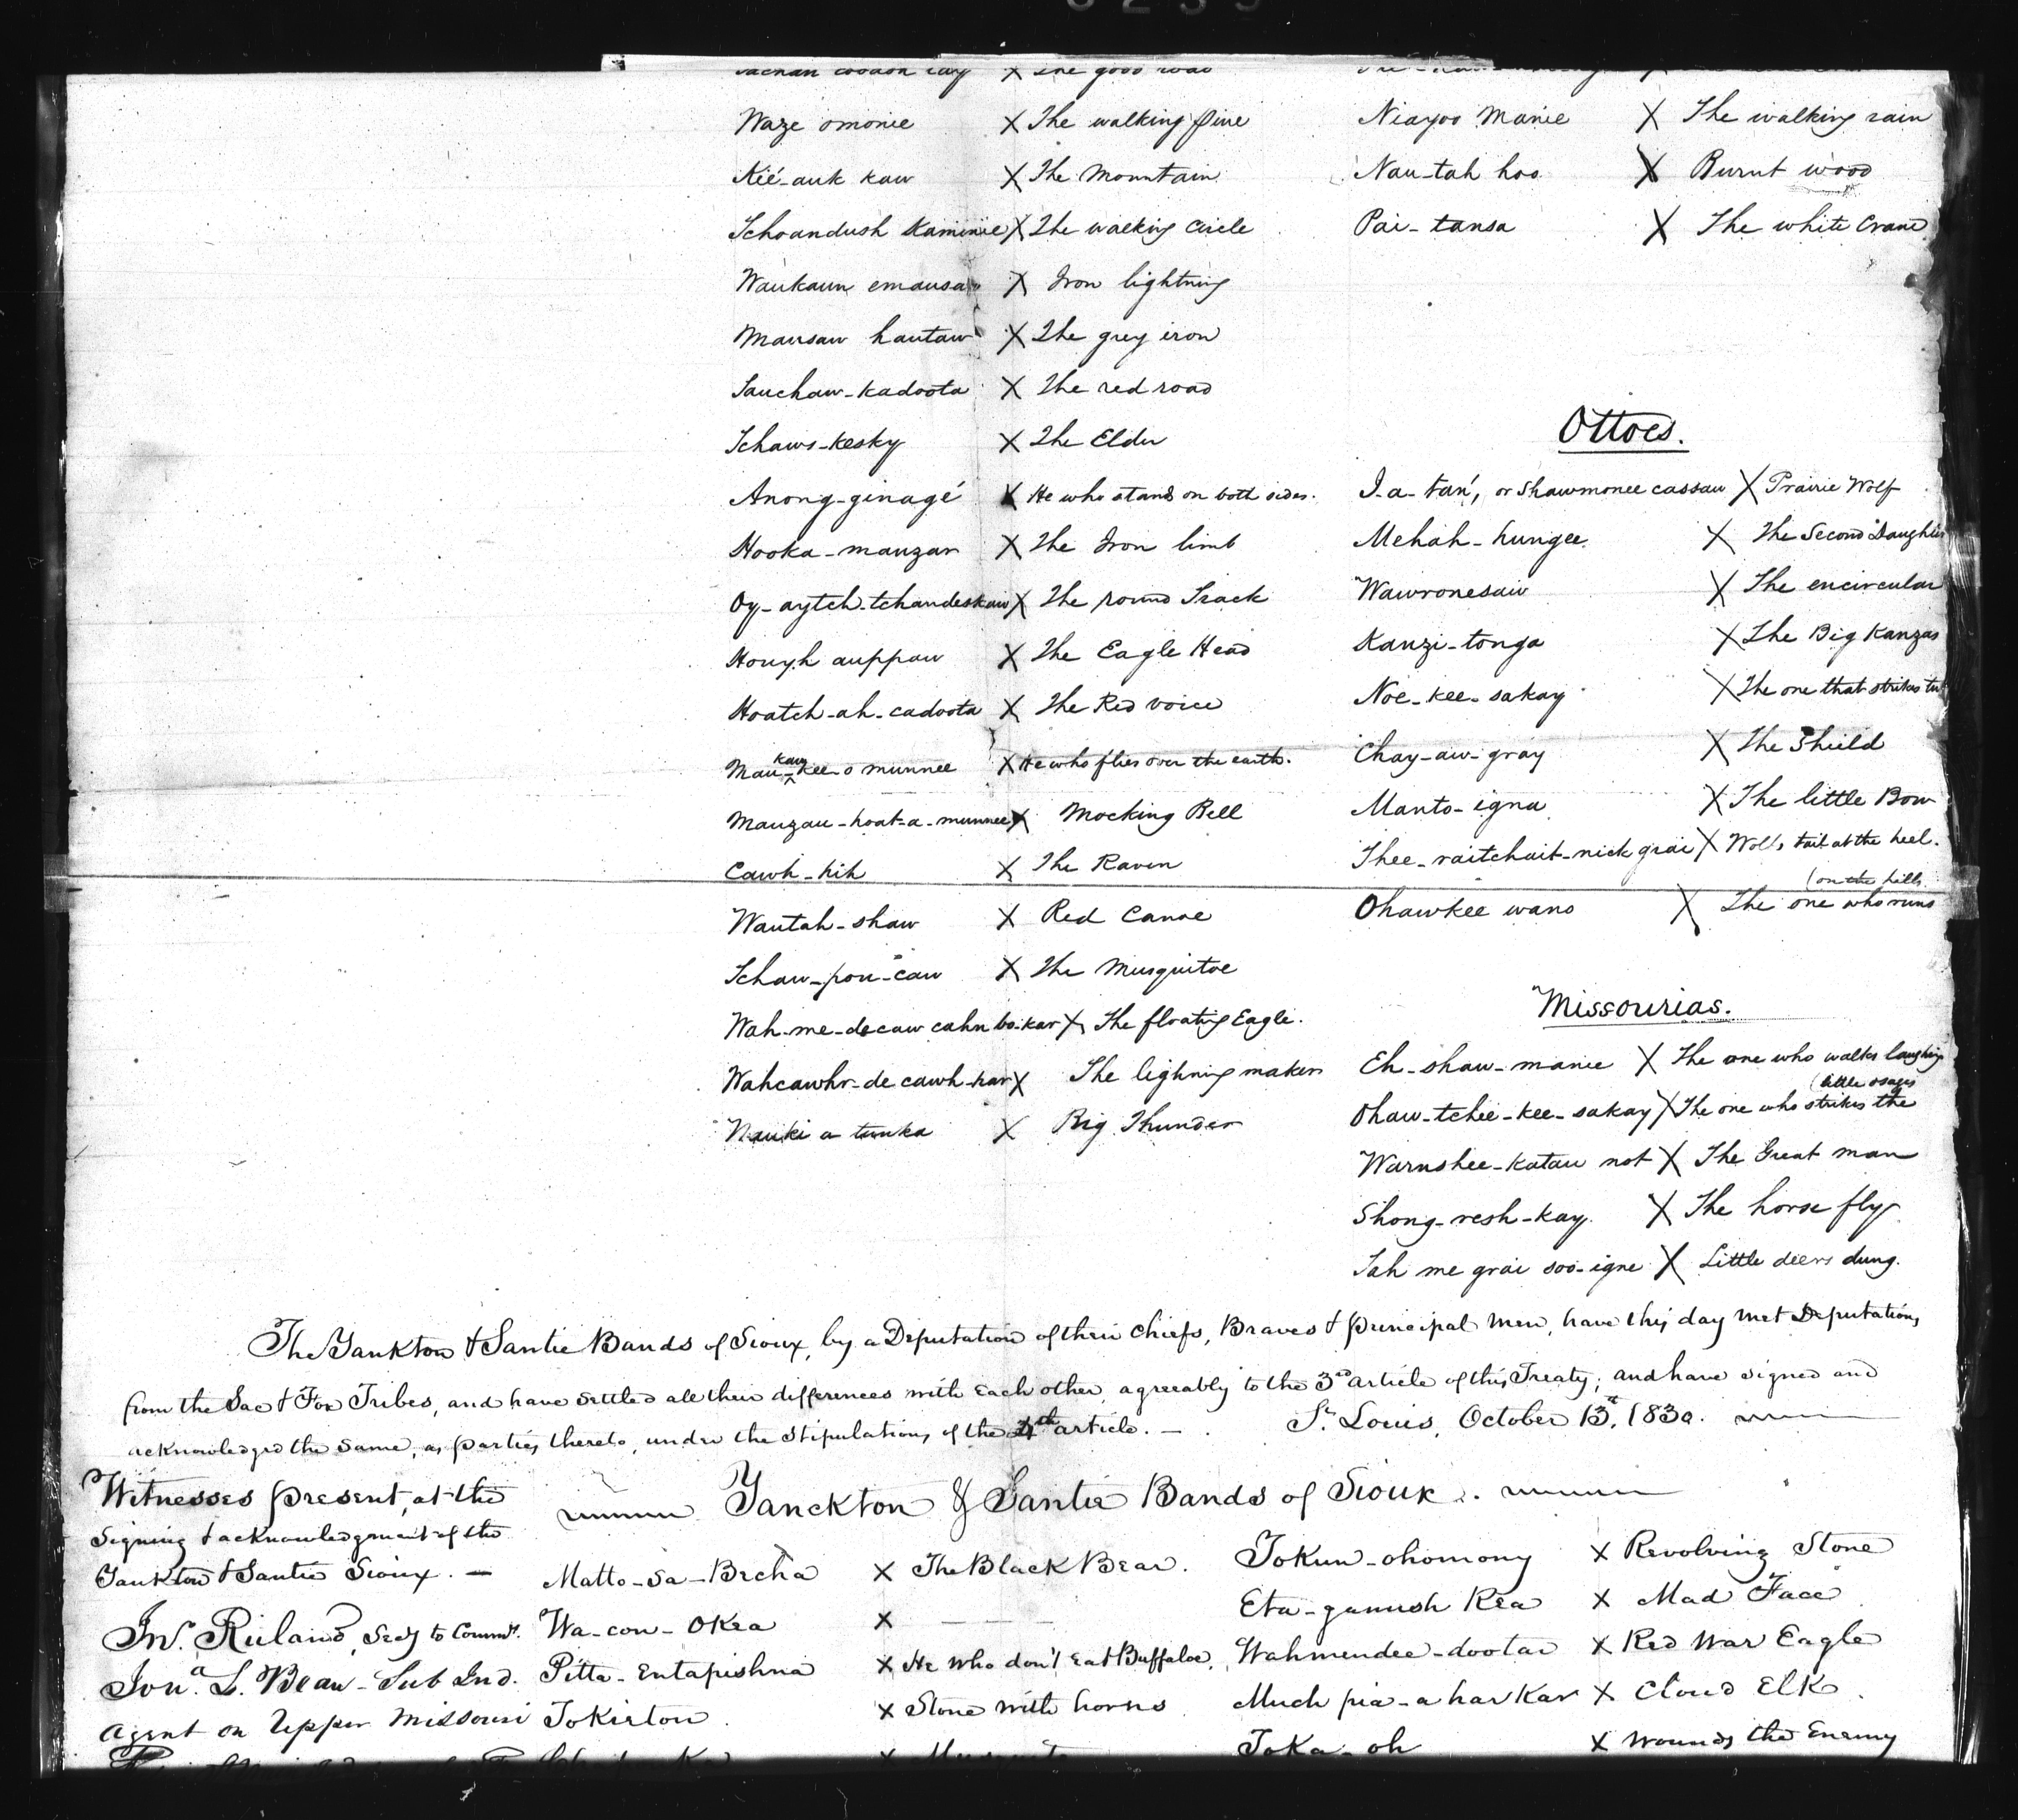 X The good road
Waze omonie X The walking pine
Kié-auk kaw X The Mountain
Tchoandush kaminie X The walking Circle
Waukaun emausa X Iron lightning
Mausau hautau X The grey iron
Tauchaw-kadoota X The red road
Tchaws-kesky X The Elder
Anong-ginagé X He who stands on both sides.
Hooka-mauzar X The Iron limb
Oy-aytch-tchandeskaw X The round Track
Hough auppaw X The Eagle Head
Hoatch-ah-cadoota X The Red voice
Mau-kaw-kee-o munnee X He who flies over the earth.
Mauzau-hoat-a-munnee X Mocking Bell
Cawh-hih X The Raven
Wautah-shaw X Red Canoe
Tchaw-pou-caw X The Musquitoe
Wah-me-decaw cahn bo-kar X The floating Eagle.
Wahcawhr-de cawh-har X The lighning maker
Nauki a tunka X Big Thunder
Niayoo Manie X The walking rain
Nau-tah hoo X Burnt wood
Pai-tansa X The white Crane
Ottoes.
I-a-tan, or Shawmonee cassaw X Prairie Wolf
Mehah-hungee X The Second Daughter
Wawronesaw X The encircular
Kanzi-tonga X The Big Kanzas
Noe-kee-sakay X The one that strikes
Chay-aw-gray X The Shield
Manto-igna X The little Bow
Thee-raitchait-nick grai X Wolfs tail at the heel.
(on the hills
Ohawkee wano X The one who runs
Missourias.
Eh-shaw-manie X The one who walks laughing
(little osages
Ohaw-tchee-kee-sakay X The one who strikes the
Warnshee-katau not X The Great man
Shong-resh-kay X The horse fly
Tah me grai soo-igne X Little deers dung.
The Yankton & Santie Bands of Sioux, by a Deputation of their Chiefs, Braves & principal Men, have this day met Deputations
from the Sac & Fox Tribes, and have settled all their differences with each other, agreeably to the 3rd article of this Treaty; and have signed and
acknowledged the same, as parties thereto, under the stipulations of the article. — St. Louis, October 13th, 1830.
Yanckton & Santie Bands of Sioux.
Witnesses present, at the
signing & acknowledgment of the
Yankton & Santie Sioux. —
Jno. Ruland, Secy to Commrs.
Jona. L. Bean - Sub Ind.
Agent on Upper Missouri
Matto-Sa-Becha X The Black Bear.
Wa-con-Okea X
Pitta-Eutapishna X He who don't Eat Buffaloe,
Tokieton X Stone with horns
Tokun-ohomony X Revolving Stone
Eta-gamush Kea X Mad Face
Wahmendee-dootar X Red War Eagle
Much pia-a har Kar X Cloud Elk
Toka-oh X Wounds the Enemy